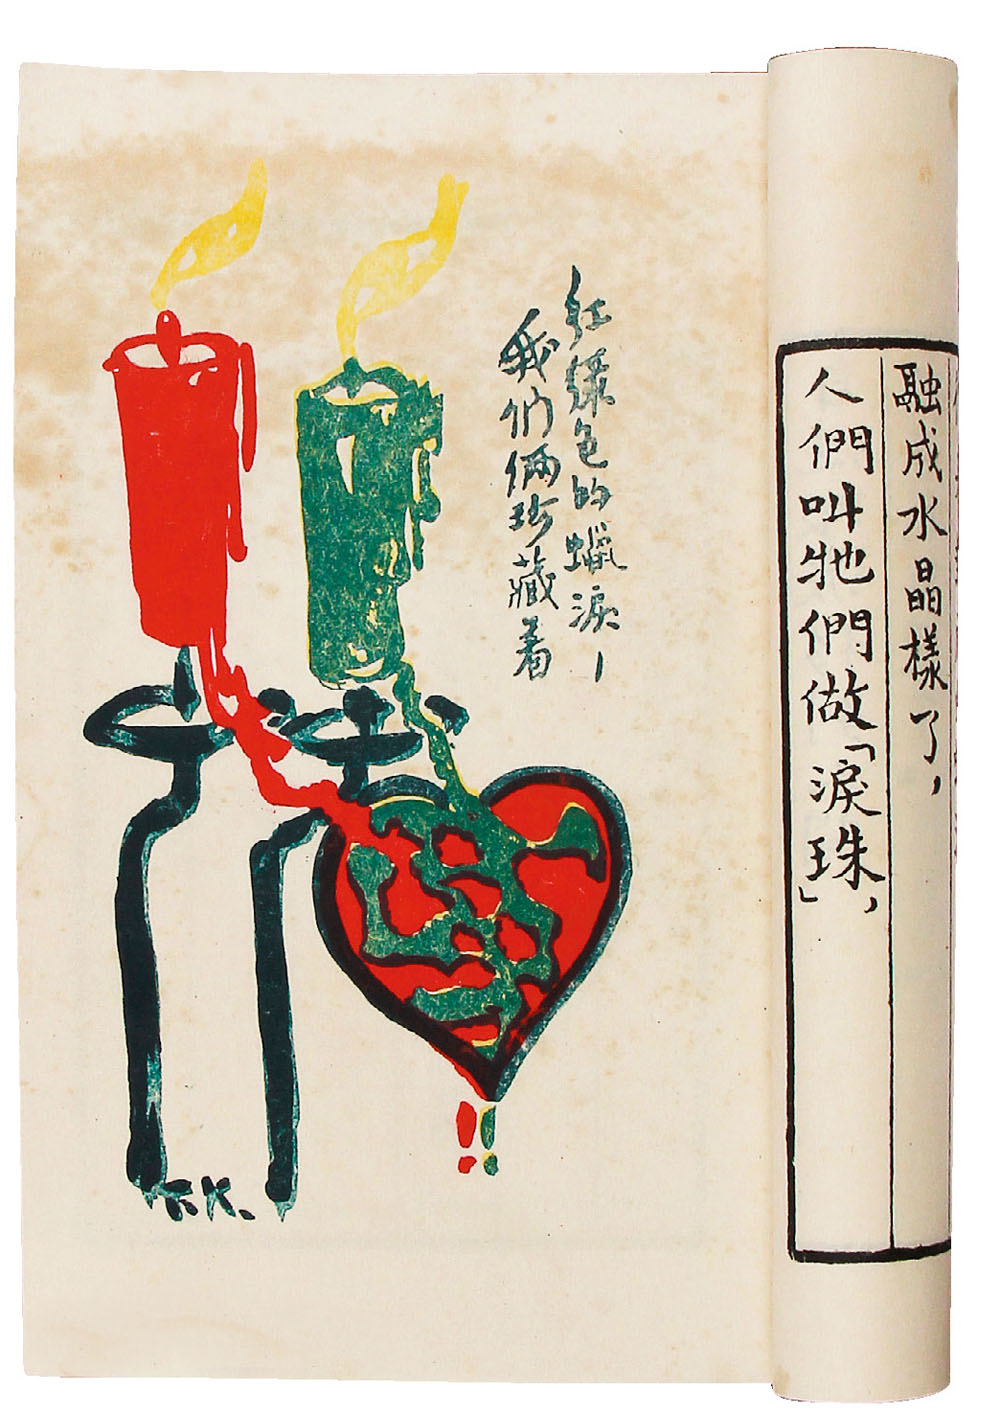 融成水晶樣了，
人們叫牠們做「淚珠」，
紅綠色的蠟淚——
我們倆珍藏着
F.K.